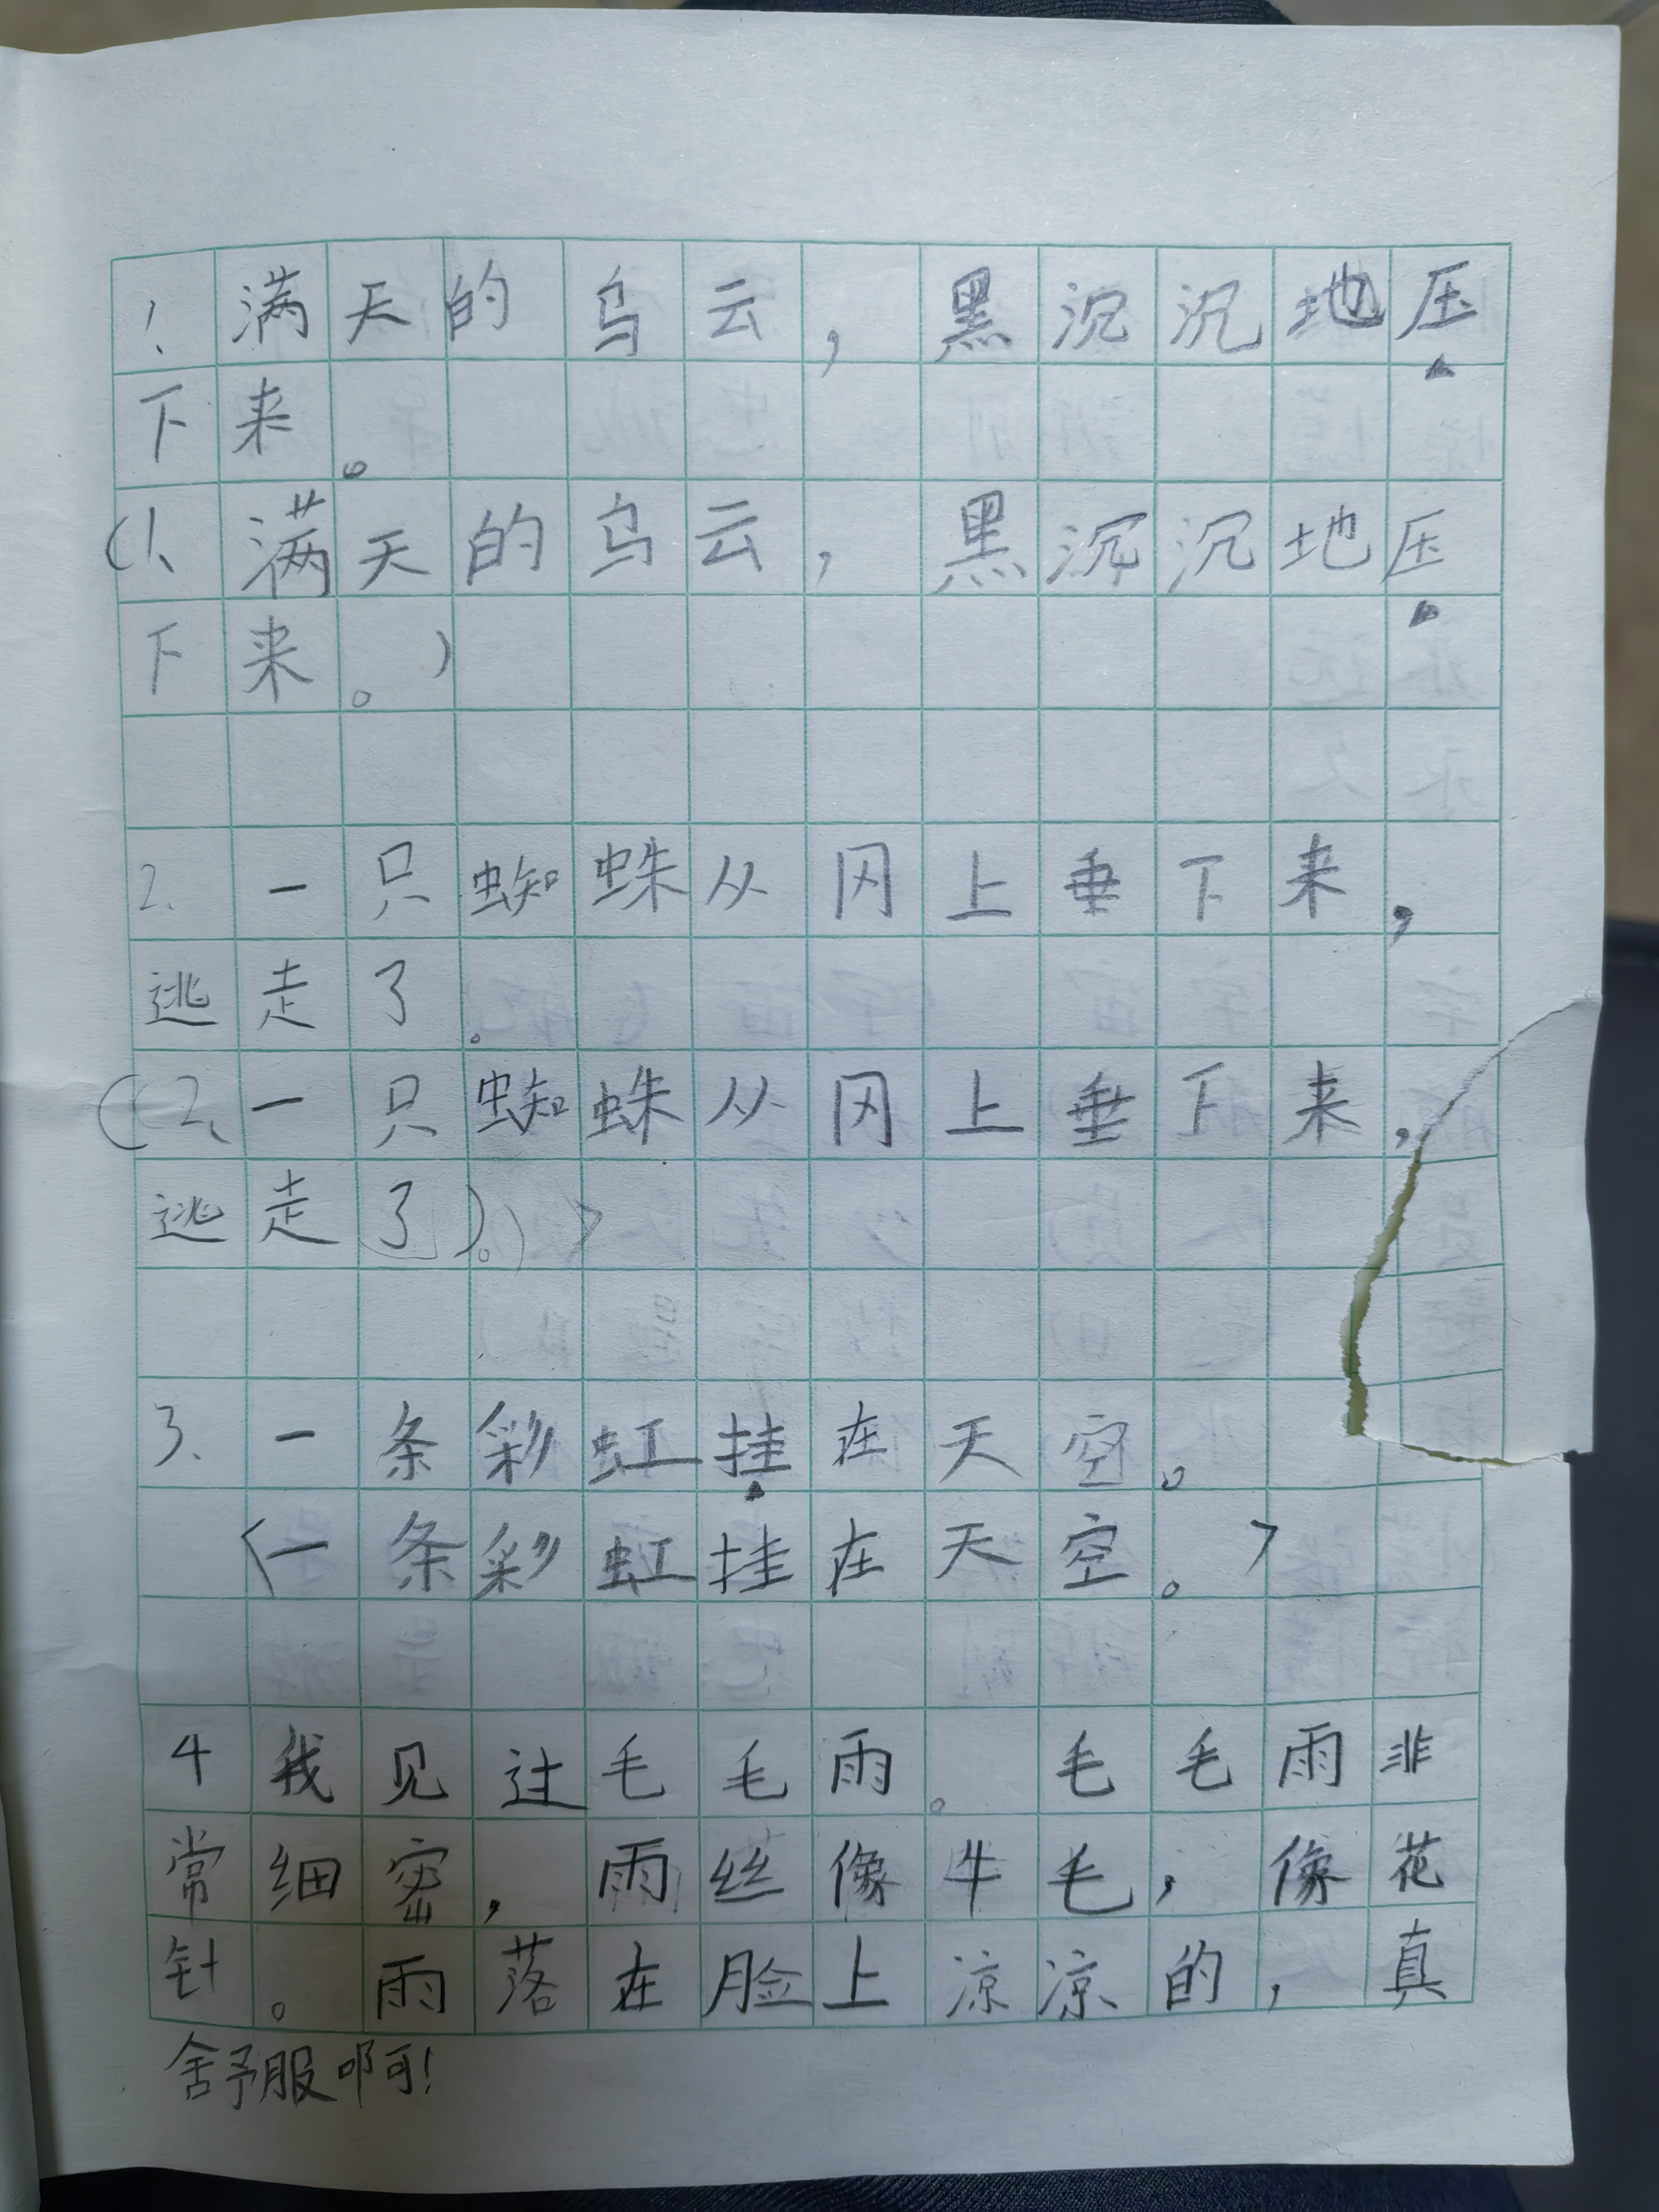 1. 满天的乌云，黑沉沉地压
下来。
(1、满天的乌云，黑沉沉地压
下来。)
2、一只蜘蛛从网上垂下来，
逃走了。
(2、一只蜘蛛从网上垂下来，
逃走了。)
3、一条彩虹挂在天空。
〈一条彩虹挂在天空。〉
4 我见过毛毛雨。毛毛雨非
常细密，雨丝像牛毛，像花
针。雨落在脸上凉凉的，真
舍予服啊！